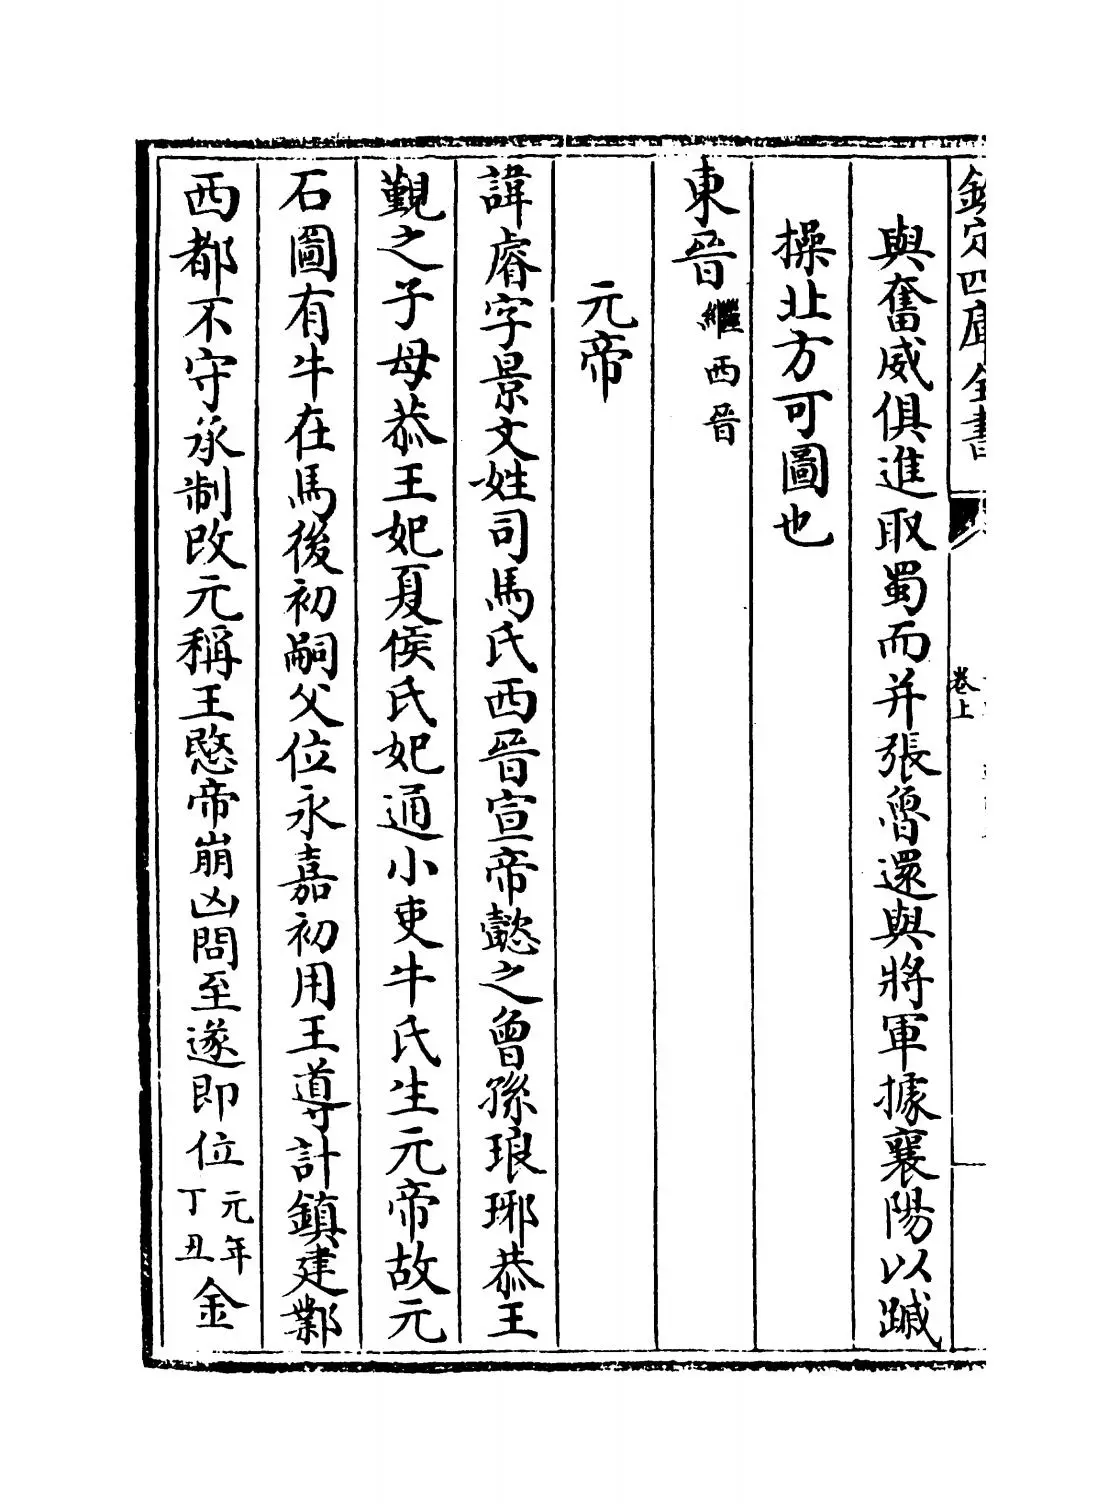 欽定四庫全書
卷上
與奮威俱進取蜀而并張魯還與將軍據襄陽以蹙
操北方可圖也
東晉繼西晉
元帝
諱睿字景文姓司馬氏西晉宣帝懿之曾孫琅琊恭王
覲之子母恭王妃夏侯氏妃通小吏牛氏生元帝故元
石圖有牛在馬後初嗣父位永嘉初用王導計鎮建鄴
西都不守承制改元稱王愍帝崩凶問至遂即位元年丁丑金